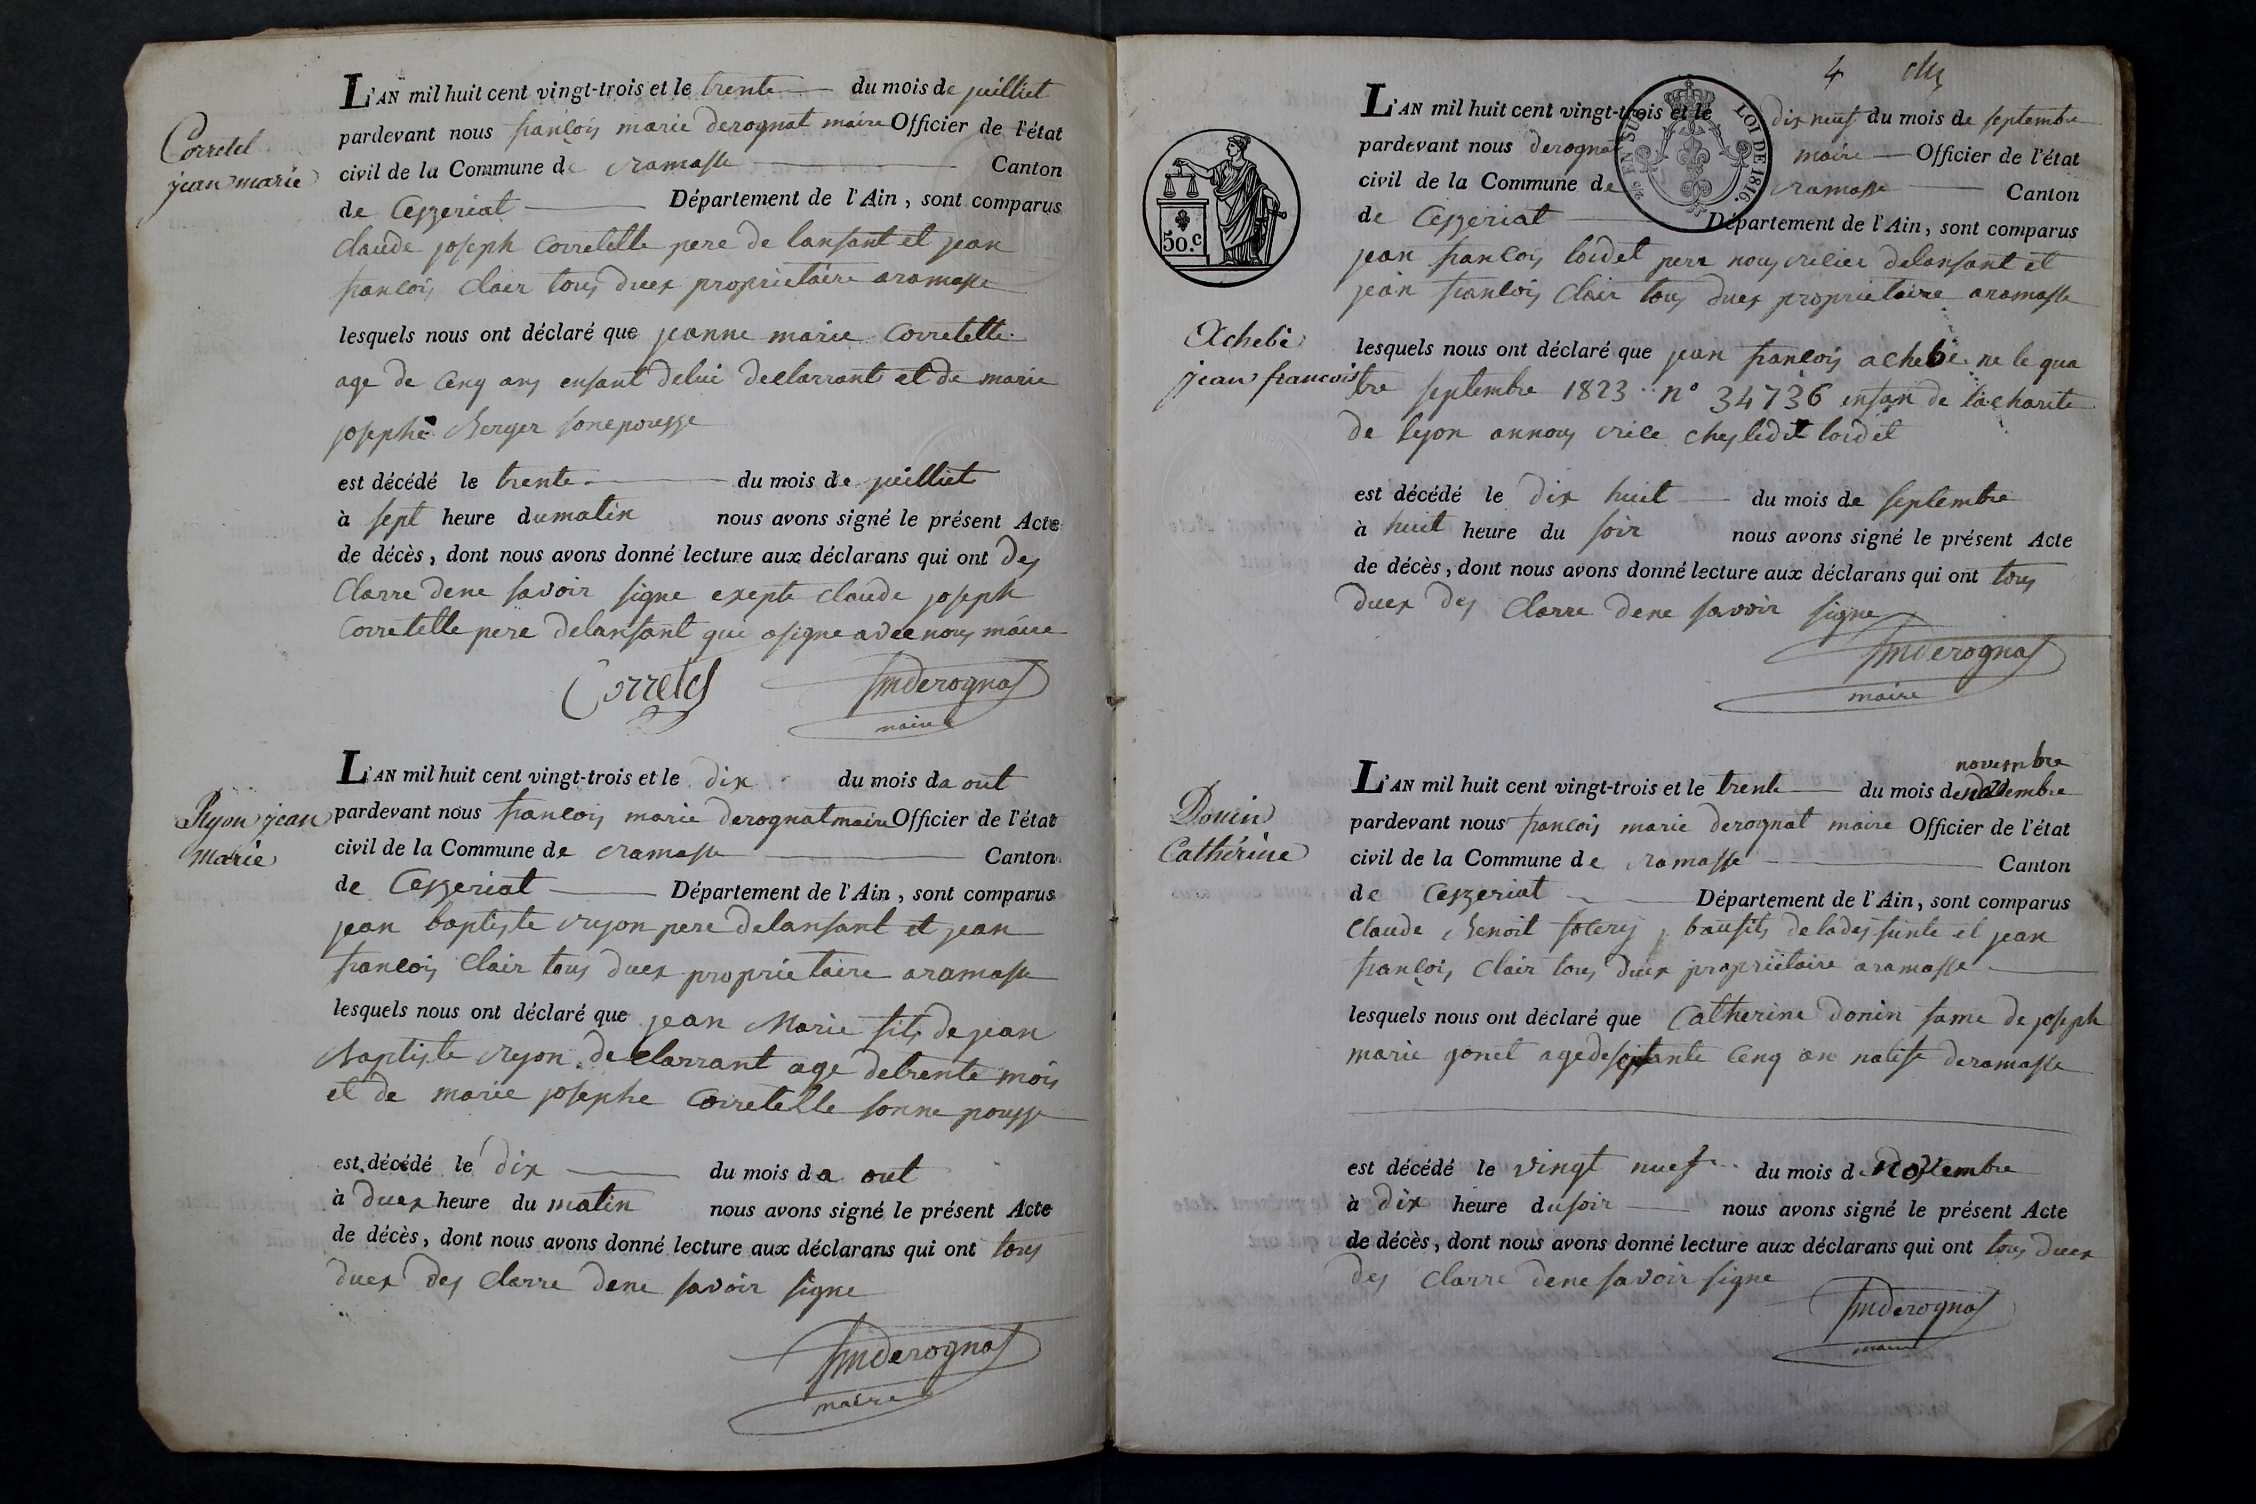 Corretel
jean marie
L'AN mil huit cent vingt-trois et le trente du mois de juilliet
pardevant nous francois marie derognat maire Officier de l'état
civil de la Commune de ramasse Canton
de Ceyzeriat Département de l'Ain, sont comparus
claude joseph Corretelle pere de lansant et jean
francois clair tous duex proprietaire aramasse
lesquels nous ont déclaré que jeanne marie Corretelle
age de Cenq ans ensant delui declarrant et de marie
josephe Berger sonepousse
est décédé le trente du mois de juilliet
à sept heure du matin nous avons signé le présent Acte
de décès, dont nous avons donné lecture aux déclarans qui ont des
Clarre dene savoir signe exepte claude joseph
Corretelle pere delansant qui asigne avec nous maire
Corretel fmderognat
maire
jean
marie
L'AN mil huit cent vingt-trois et le dix du mois da out
pardevant nous francois marie derognat maire Officier de l'état
civil de la Commune de ramasse Canton
de Ceyzeriat Département de l'Ain, sont comparus
jean baptiste pere delansant et jean
francois Clair tous duex proprietaire aramasse
lesquels nous ont déclaré que jean Marie fils de jean
Baptiste declarrant age detrente mois
et de marie josephe Corretelle sonne pousse
est décédé le dix du mois da out
à duex heure du matin nous avons signé le présent Acte
de décès, dont nous avons donné lecture aux déclarans qui ont tous
duex des clarre dene savoir signe
fmderognat
maire
4
EN SUS LOI DE 1816.
50.c
L'AN mil huit cent vingt-trois et le dix neuf du mois de septembre
pardevant nous derognat maire Officier de l'état
civil de la Commune de ramasse Canton
de Ceyzeriat Département de l'Ain, sont comparus
jean francois loidet pere nouricier delansant et
jean francois Clair tous duex proprietaire aramasse
Achebé
jean francois
lesquels nous ont déclaré que jean francois achebé ne le qua
tre septembre 1823 n° 34736 ensan de la charite
de lyon annous chesledit loidet
est décédé le dix huit du mois de septembre
à huit heure du soir nous avons signé le présent Acte
de décès, dont nous avons donné lecture aux déclarans qui ont tous
duex des Clarre dene savoir signe
fmderognat
maire
Donin
Cathérine
novembre
L'AN mil huit cent vingt-trois et le trente du mois de novembre
pardevant nous francois marie derognat maire Officier de l'état
civil de la Commune de ramasse Canton
de Ceyzeriat Département de l'Ain, sont comparus
Claude Benoit baufits delades sunte et jean
françois Clair tous duex propriétaire aramasse
lesquels nous ont déclaré que Catherine donin fame de joseph
marie gonet agedeseptante Cenq an natife deramasse
est décédé le vingt nuef du mois de novembre
à dix heure du soir nous avons signé le présent Acte
de décès, dont nous avons donné lecture aux déclarans qui ont tous duex
des Clarre dene savoir signe
fmderognat
maire